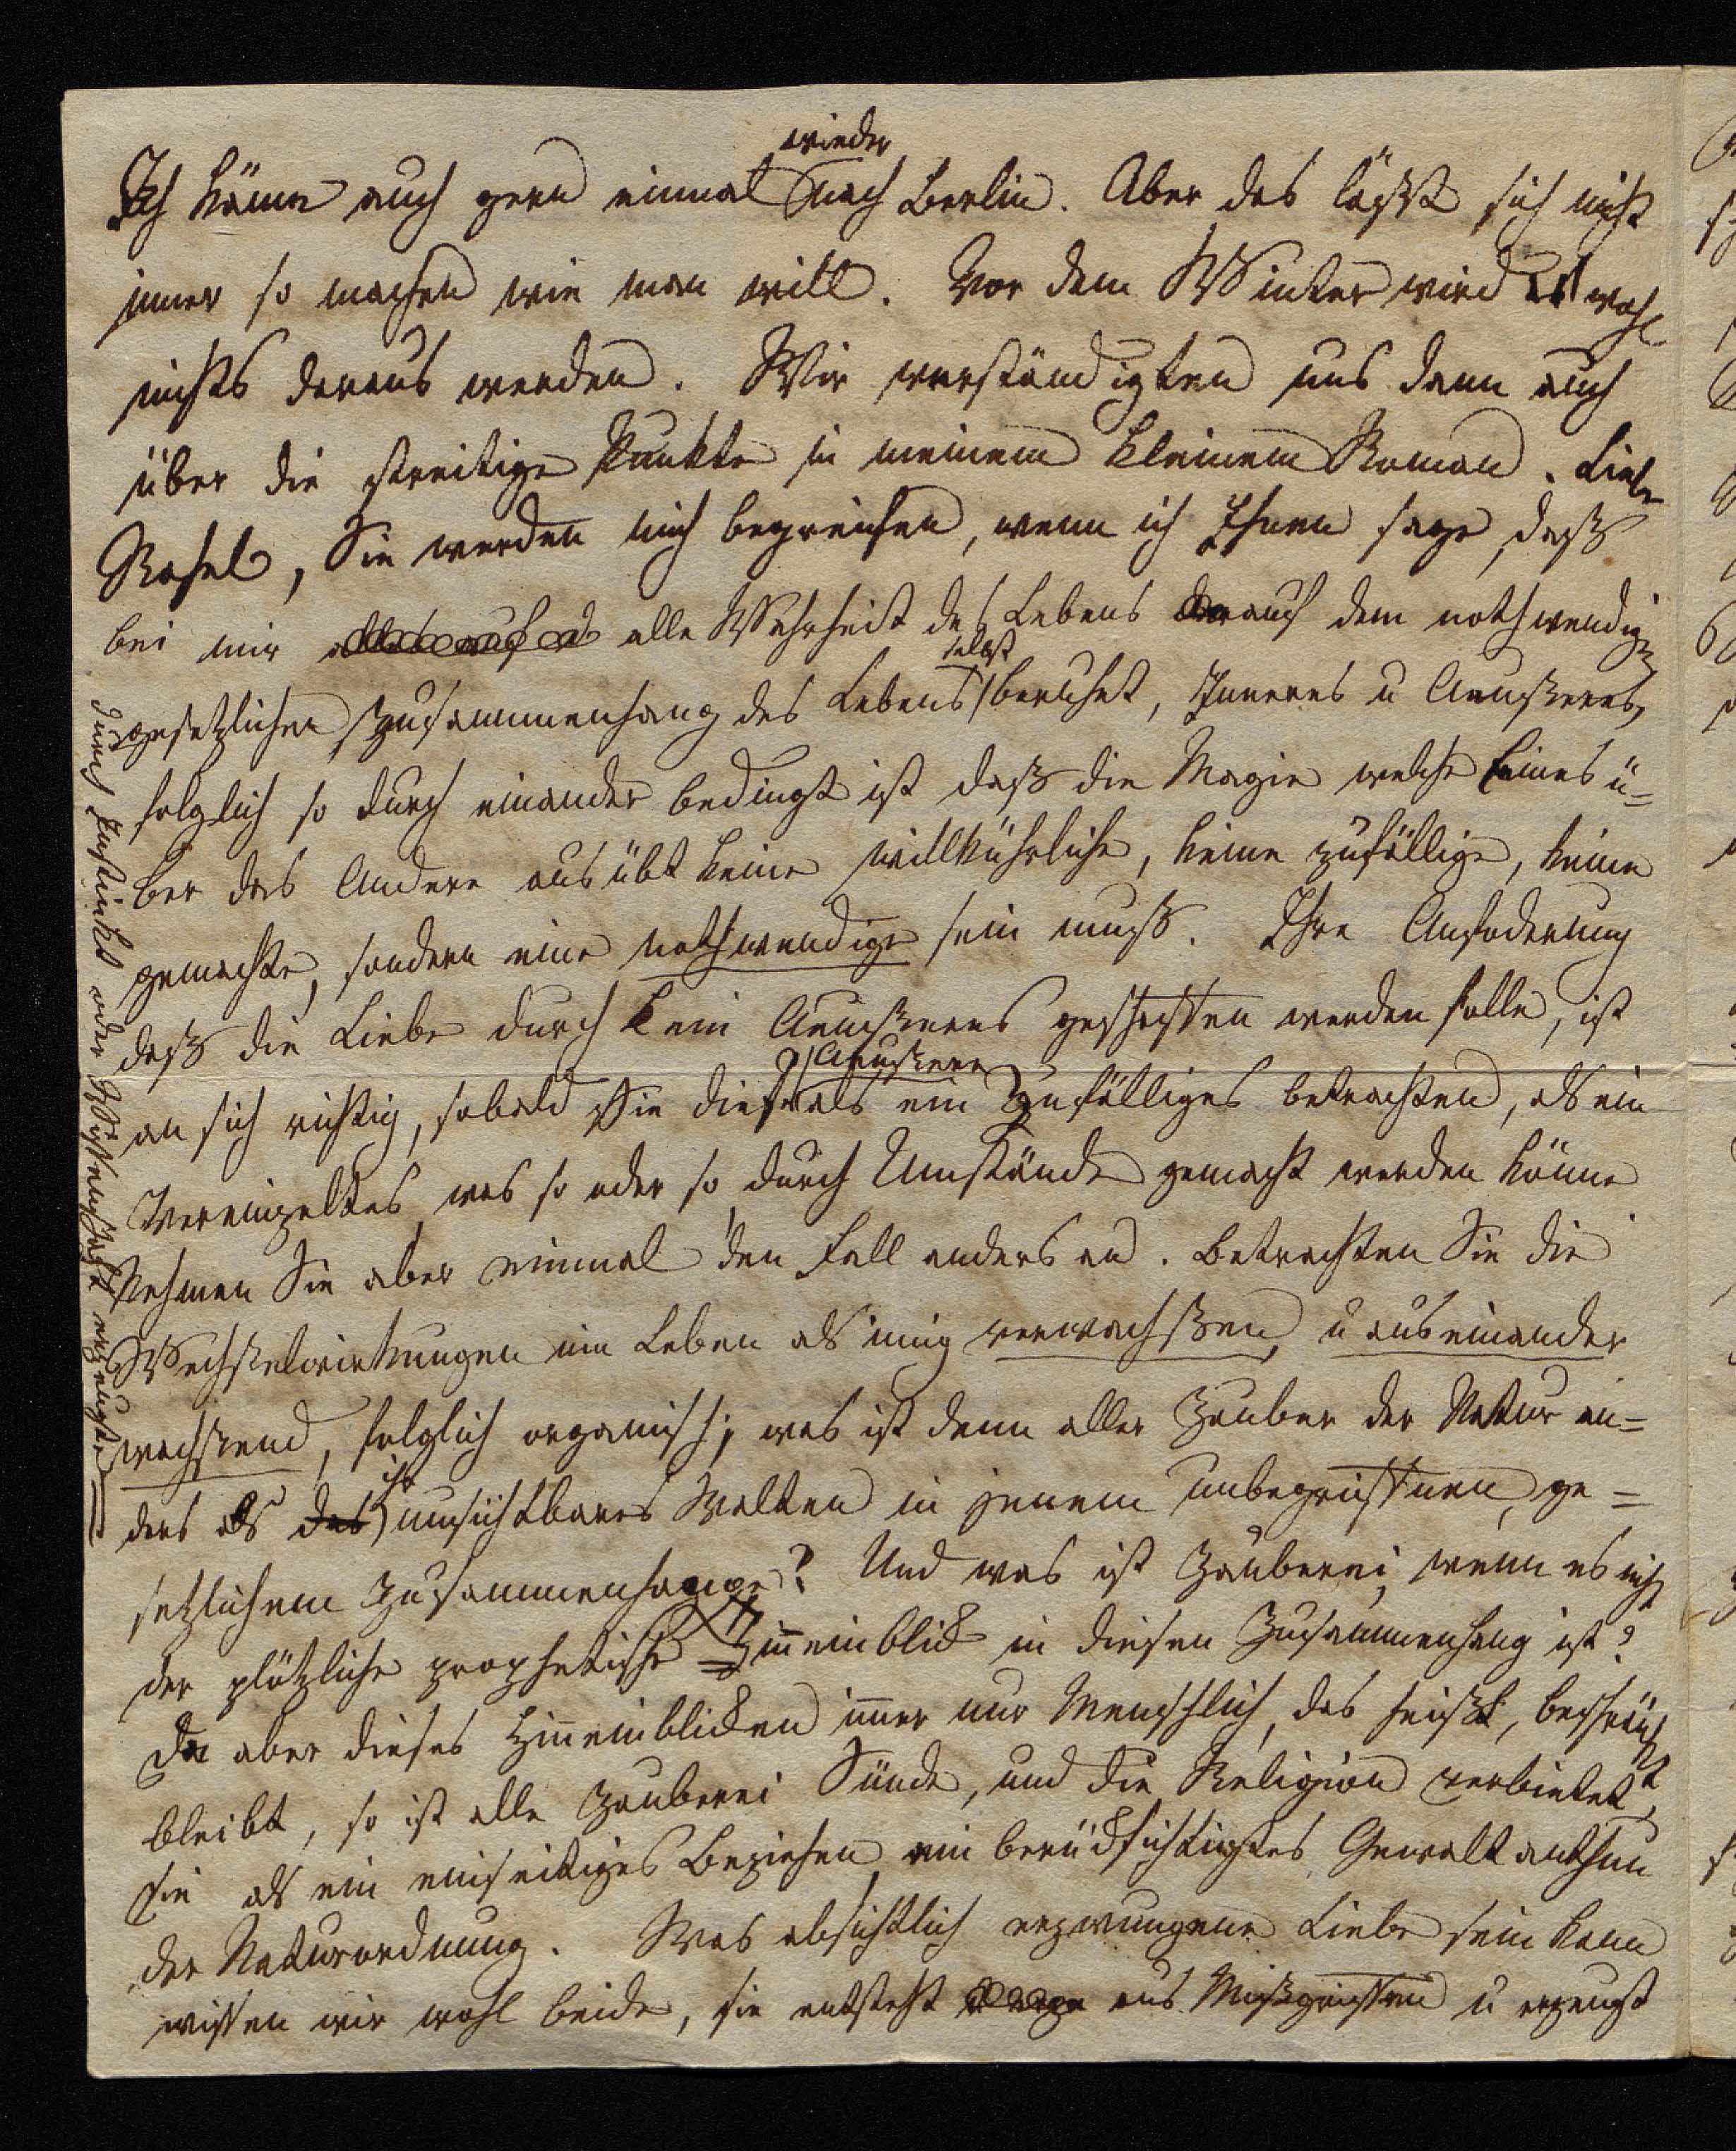 Ich käme auch gern einmal wieder nach Berlin. Aber das läßt sich nicht
immer so machen wie man will. Vor dem Winter wird es wohl
nichts daraus werden. Wir verständigten uns dann auch
über die streitige Punkte in meinem kleinem Roman. Liebe
Rahel, Sie werden mich begreifen, wenn ich Ihnen sage, daß
bei mir alle Wahrheit des Lebens auf dem nothwendig
gesetzlichen Zusammenhang des Lebens selbst beruhet, Inneres u Aeußeres,
folglich so durch einander bedingt ist daß die Magie welche Eines ü=
ber das Andere ausübt keine willkührliche, keine zufällige, keine
gemachte, sondern eine nothwendige sein muß. Ihre Anfoderung
daß die Liebe durch kein Aeußeres geschaffen werden solle, ist
an sich richtig, sobald Sie dies Aeußere als ein Zufälliges betrachten, als ein
Vereinzeltes, was so oder so, durch Umstände gemacht werden könne
Nehmen Sie aber einmal den Fall anders an. Betrachten Sie die
Wechselwirkungen im Leben als innig verwachsen, u aus einander
wachsend, folglich organisch; was ist denn aller Zauber der Natur an=
ders als das ihr unsichtbares Walten in jenem unbegriffnen, ge=
setzlichem Zusammenhange? Und was ist Zauberei, wenn es nicht
der plötzliche prophetische Hineinblick in diesen Zusammenhang ist?
Da aber dieses Hineinblicken immer nur Menschlich, das heißt, beschränkt
bleibt, so ist alle Zauberei Sünde, und die Religion verbietet
sie als ein einseitiges Beziehen, ein berücksichtigtes Gewaltanthun
der Naturordnung. Was absichtlich erzwungene Liebe sein kann
wissen wir wohl beide, sie entsteht aus Mißgriffen u erzeugt
durch Instinkt oder Wissenschaft erzeugte